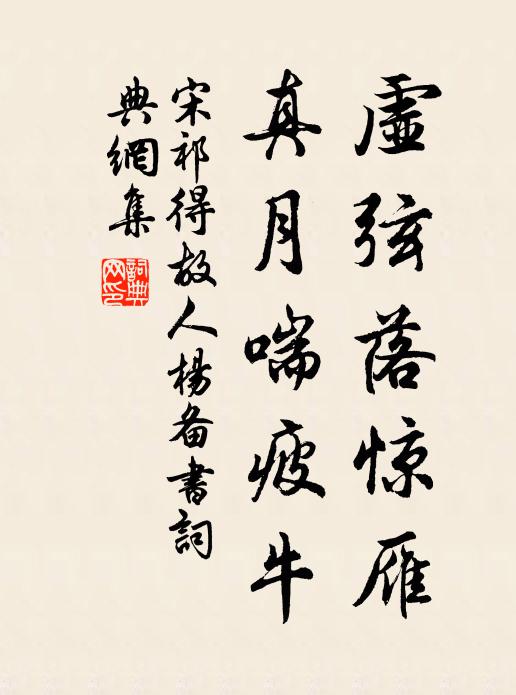 虛弦落惊雁
真月喘疲牛
宋祁得故人楊备書詞
典網集
詞典网印